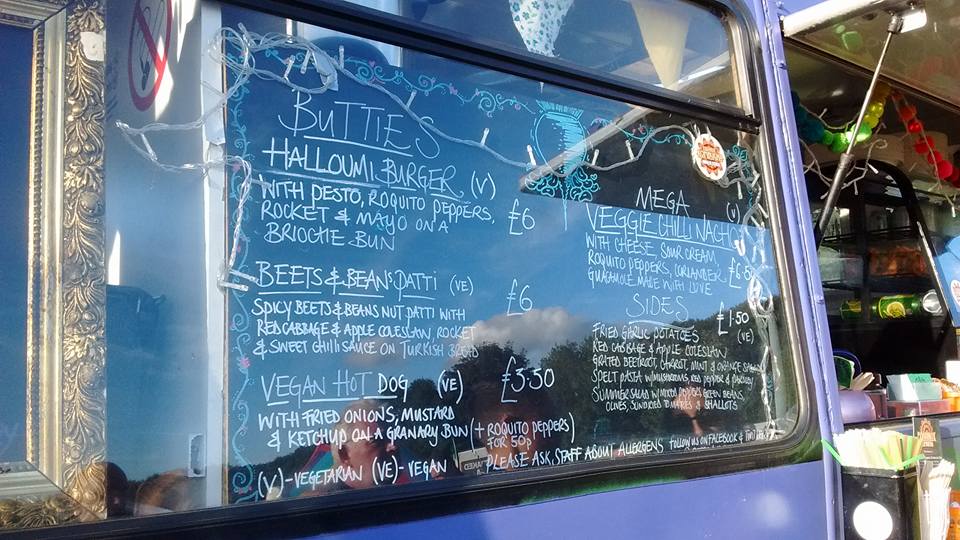 BUTTIES
HALLOUMI BURGER (V)
WITH PESTO, ROQUITO PEPPERS,
ROCKET & MAYO ON A
BRIOCHE BUN
£6
BEETS & BEANS PATTI (VE)
£6
SPICY BEETS & BEANS NUT PATTI WITH
RED CABBAGE & APPLE COLESLAW, ROCKET
& SWEET CHILLI SAUCE ON TURKISH BREAD
VEGAN HOT DOG (VE) £3.50
WITH FRIED ONIONS, MUSTARD
& KETCHUP ON A GRANARY BUN (+ ROQUITO PEPPERS
FOR 50p)
(V)-VEGETARIAN (VE)-VEGAN
PLEASE ASK STAFF ABOUT ALLERGENS
MEGA (V)
VEGGIE CHILLI NACHO
WITH CHEESE, SOUR CREAM,
ROQUITO PEPPERS, CORIANDER,
GUACAMOLE MADE WITH LOVE
SIDES £1.50
(VE)
FRIED GARLIC POTATOES
RED CABBAGE & APPLE COLESLAW
GRATED BEETROOT, CARROT, MINT & ORANGE
SPELT PASTA W/MUSHROOMS, RED PEPPER & PARSLEY
SUMMER SALAD W/MIXED PEPPERS, GREEN BEANS,
OLIVES, SUNDRIED TOMATOES & SHALLOTS
FOLLOW US ON FACEBOOK &